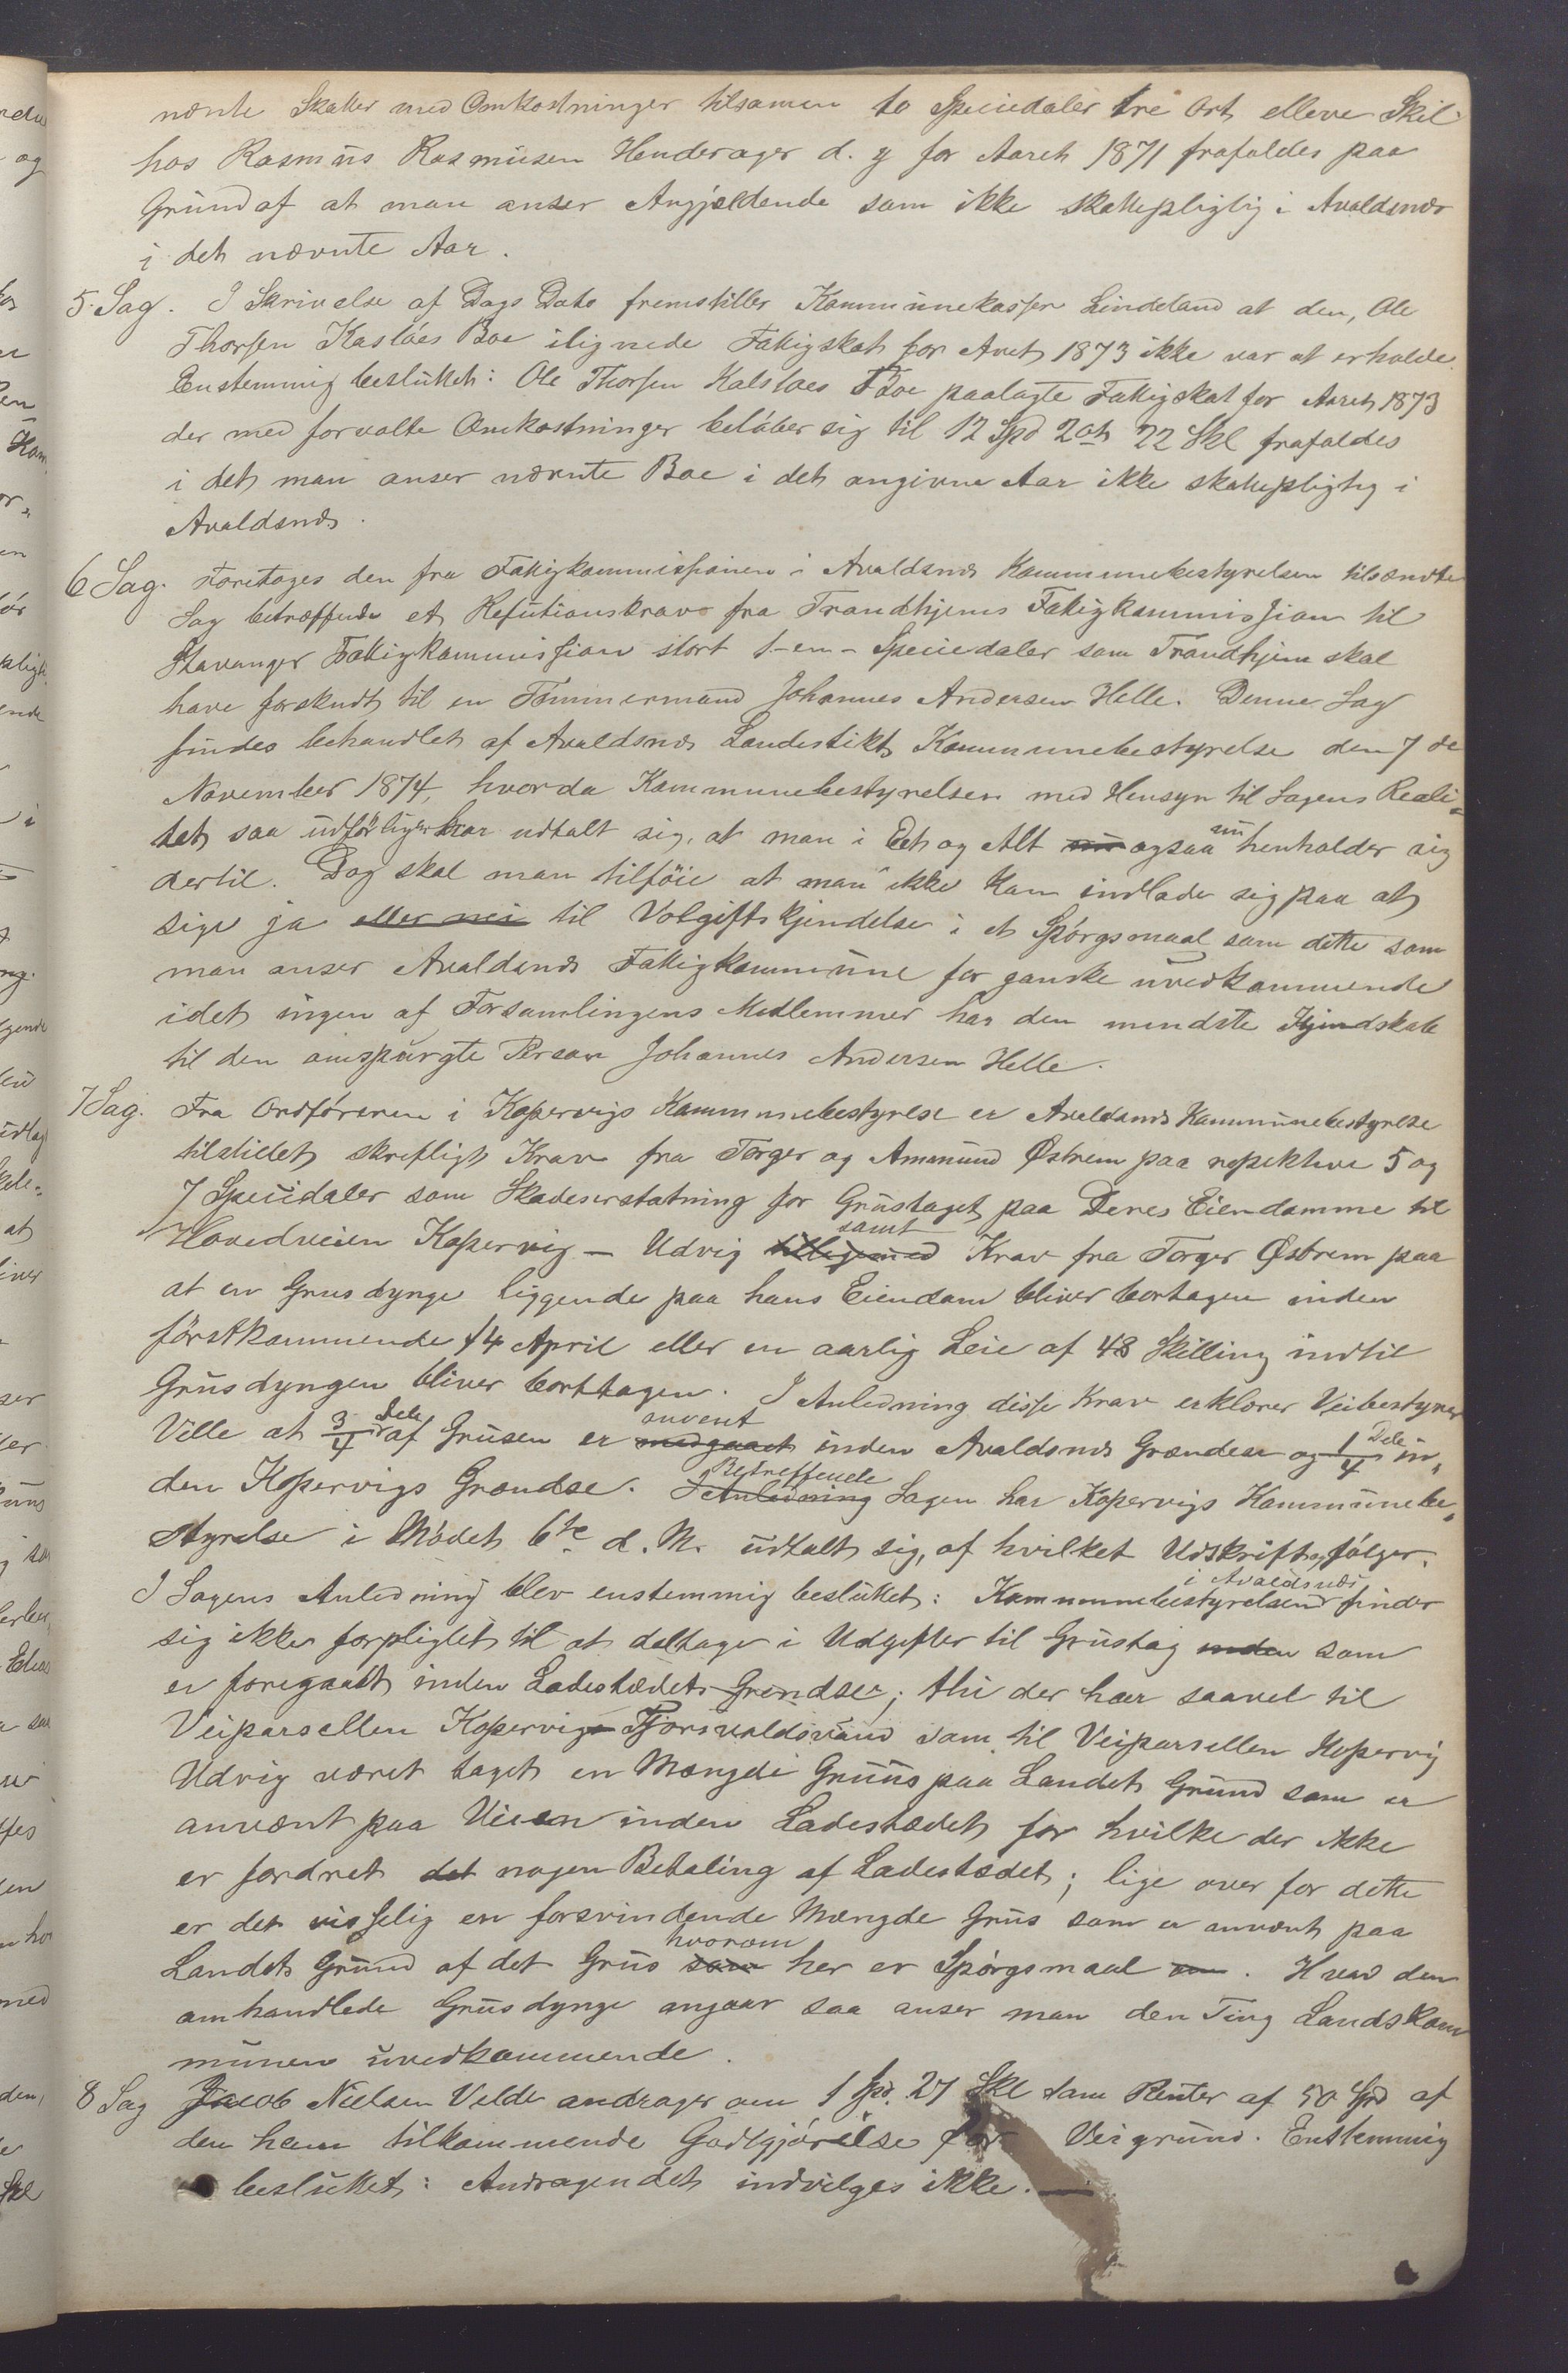 nævnte Skatter med Omkostninger tilsamen to Speciedaler tre Ort elleve Skil
hos Rasmus Rasmusen Henderager d. y for Aaret 1871 frafaldes paa
Grund af at man anser Angjældende som ikke skattepligtig i Avaldsnæs
i det nævnte Aar.
5. Sag. I Skrivelse af Dags Dato fremstiller Kommunekasser Lindeland at den, Ole
Thorsen Kaslöes Boe ilignede Fattigskat for Aaret 1873 ikke var at erholde.
Enstemmig besluttet: Ole Thorsen Kalstoes Boe paalagte Fattigskat for Aaret 1873
der med forvolte Omkostninger belöber sig til 12 Spd 2 ort 22 Skl frafaldes
i det man anser nævnte Boe i det angivne Aar ikke skattepligtig i
Avaldsnæs.
6 Sag. Foretages den fra Fattigkommissionen i Avaldsnæs Kommunebestyrelsen tilsendte
Sag betræffende et Refutionskrav fra Trondhjems Fattigkommission til
Stavanger Fattigkommission stort 1-en- Speciedaler som Trondhjem skal
have forskudt til en Tömmermand Johannes Andersen Helle. Denne Sag
findes behandlet af Avaldsnæs Landistrikts Kommunebestyrelse den 7de
November 1874, hvorda Kommunebestyrelsen med Hensyn til Sagens Reali-
tet saa udförligen har udtalt sig, at man i Eet og Alt nu ogsaa nu henholder sig
dertil. Dog skal man tilföie at man ikke kan indlade sig paa at
sige ja eller nei til Volgiftskjendelse i et Spörgsmaal som dette som
man anser Avaldsnæs Fattigkommune for ganske uvedkommende
idet ingen af Forsamlingens Medlemmer har den mindste Kjendskab
til den omspurgte Person Johannes Andersen Helle.
7 Sag. Fra Ordföreren i Kopervigs Kommunebestyrelse er Avaldsnæs Kommunebestyrelse
tilstillet skriftligt Krav fra Torger og Ammund Østrem paa respektive 5 og
7 Speciedaler som Skadeserstatning for Grustaget paa Deres Eiendomme til
Hovedveien Kopervig - Udvig tilligemed samt Krav fra Torger Østrem paa
at en Grusdynge liggende paa hans Eiendom bliver bortagen inden
förstkommende 14 April eller en aarlig Leie af 48 Skilling indtil
Grusdyngen bliver borttagen. I Anledning disse Krav erklærer Veibestyrer
Ville at 3/4 Dele af Grusen er medgaaet anvent inden Avaldsnæs Grændser og 1/4 Dele in-
den Kopervigs Grændse. I Anledning Betreffende Sagen har Kopervigs Kommunebe-
styrelse i Mödet 6te d. M. udtalt sig, af hvilket Udskrift fölger.
I Sagens Anledning blev enstemmig besluttet: Kommunebestyrelsen i Avaldsnæs finder
sig ikke forpligtet til at deltage i Udgifter til Grustag inden som
er foregaaet inden Ladestædets Grendser; thi der har saavel til
Veiparsellen Kopervig - Tjorsvoldsvand som til Veiparsellen Kopervig
Udvig været taget en Mængde Gruus paa Landets Grund som er
anvænt paa Veien inden Ladestædet for hvilke der ikke
er fordret det nogen Betaling af Ladestædet; lige over for dette
er det visselig en forsvindende Mængde Grus som er anvænt paa
Landets Grund af det Grus som hvorom her er Spörgsmaal om. Hvad den
omhandlede Grusdynge angaar saa anser man den Ting Landskom
munen uvedkommende.
8 Sag Jacob Nielsen Velde andrager om 1 Spd. 27 Skl som Renter af 50 Spd af
den ham tilkommende Godtgjörelse for Veigrund. Enstemmig
besluttet: Andragendet indvilges ikke. —